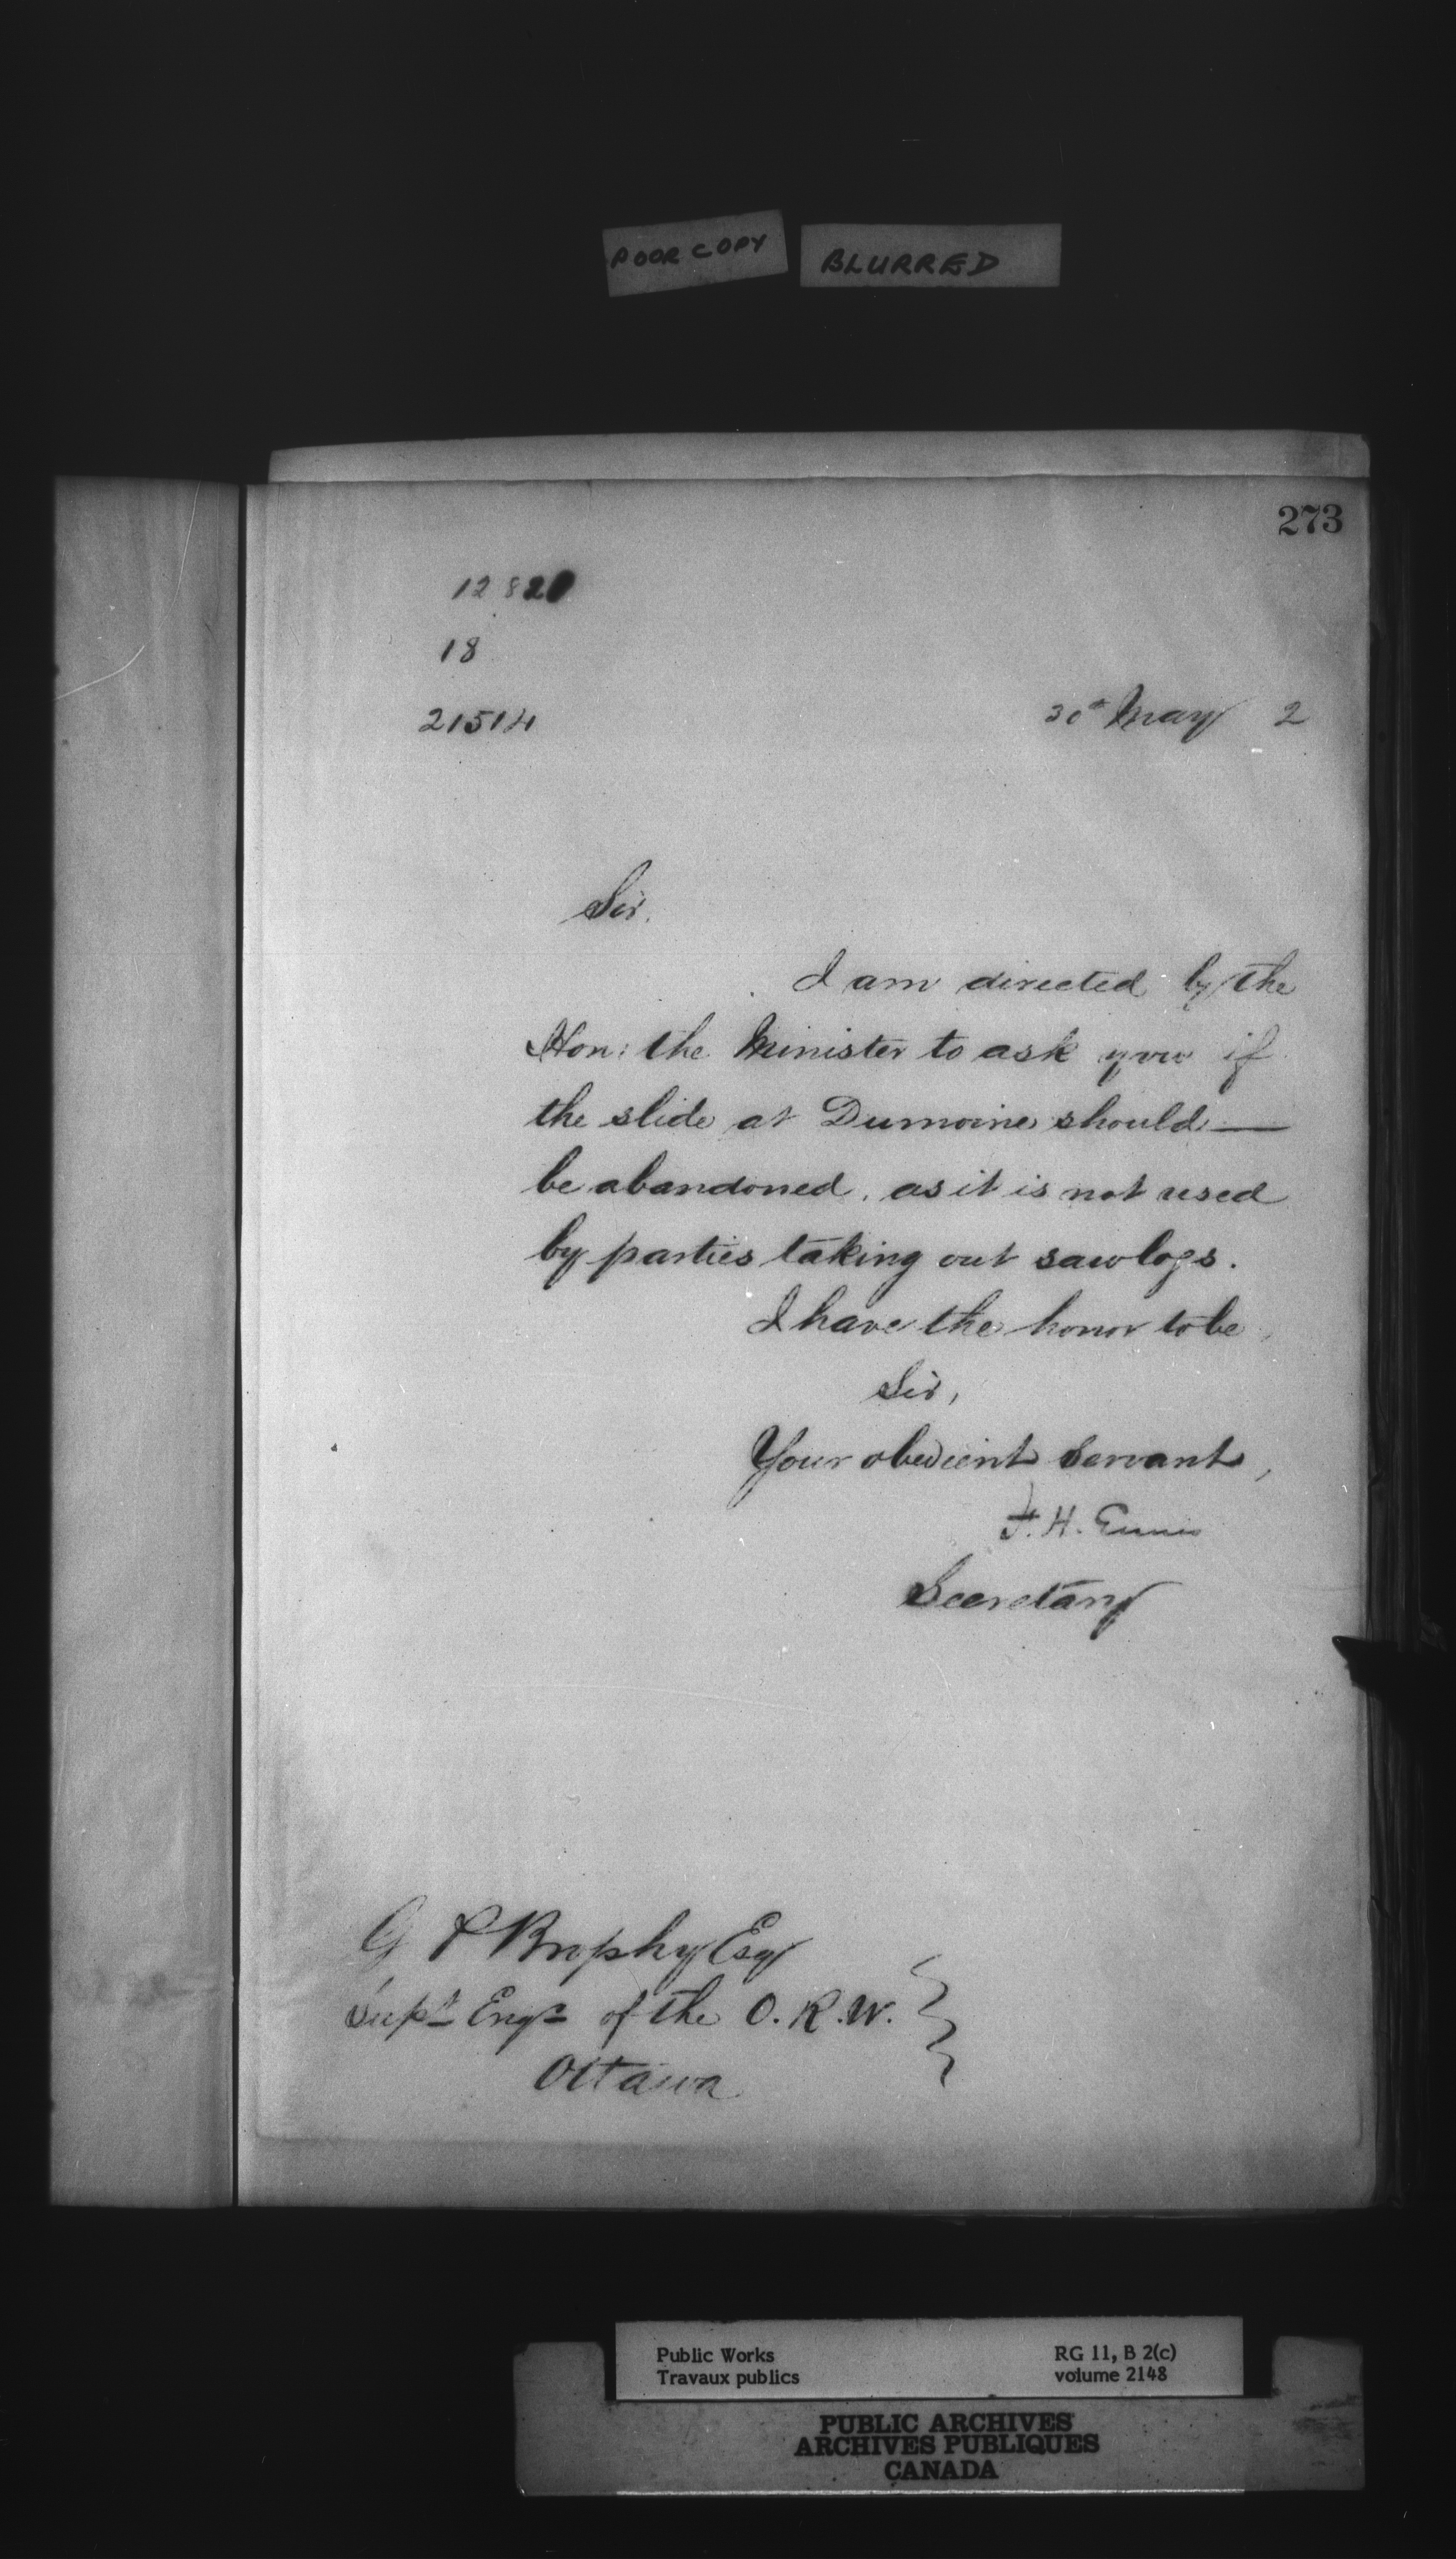 POOR COPY BLURRED
273
12820
18
21514
30th May 2
Sir.
I am directed by the
Hon: the Minister to ask you if
the slide at Dumoine should —
be abandoned, as it is not used
by parties taking out sawlogs.
I have the honor to be,
Sir,
Your obedient Servant,
F. H. Ennis
Secretary
G P Brophy Esq
Supt Engr of the O. R. W.
Ottawa
Public Works
Travaux publics
RG 11, B 2(c)
volume 2148
PUBLIC ARCHIVES
ARCHIVES PUBLIQUES
CANADA